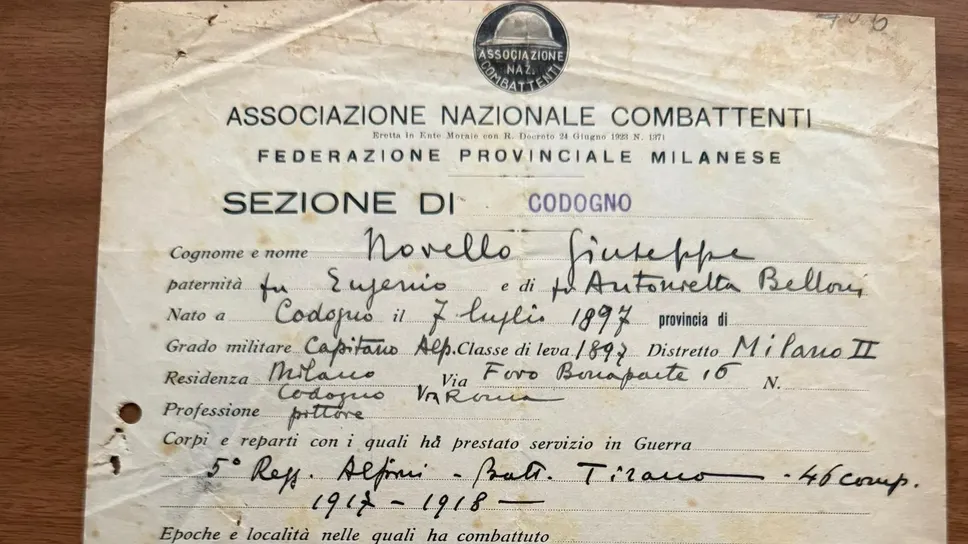 ASSOCIAZIONE
NAZ.
COMBATTENTI
ASSOCIAZIONE NAZIONALE COMBATTENTI
Eretta in Ente Morale con R. Decreto 24 Giugno 1923 N. 1371
FEDERAZIONE PROVINCIALE MILANESE
SEZIONE DI CODOGNO
Cognome e nome Novello Giuseppe
paternità fu Eugenio e di fu Antonietta Belloni
Nato a Codogno il 7 luglio 1897 provincia di
Grado militare Capitano Alp. Classe di leva 1897 Distretto Milano II
Residenza Milano Via Foro Bonaparte 16 N.
Codogno Via Roma
Professione pittore
Corpi e reparti con i quali ha prestato servizio in Guerra
5° Regg. Alpini - Batt. Tirano - 46 comp.
1917 - 1918
Epoche e località nelle quali ha combattuto